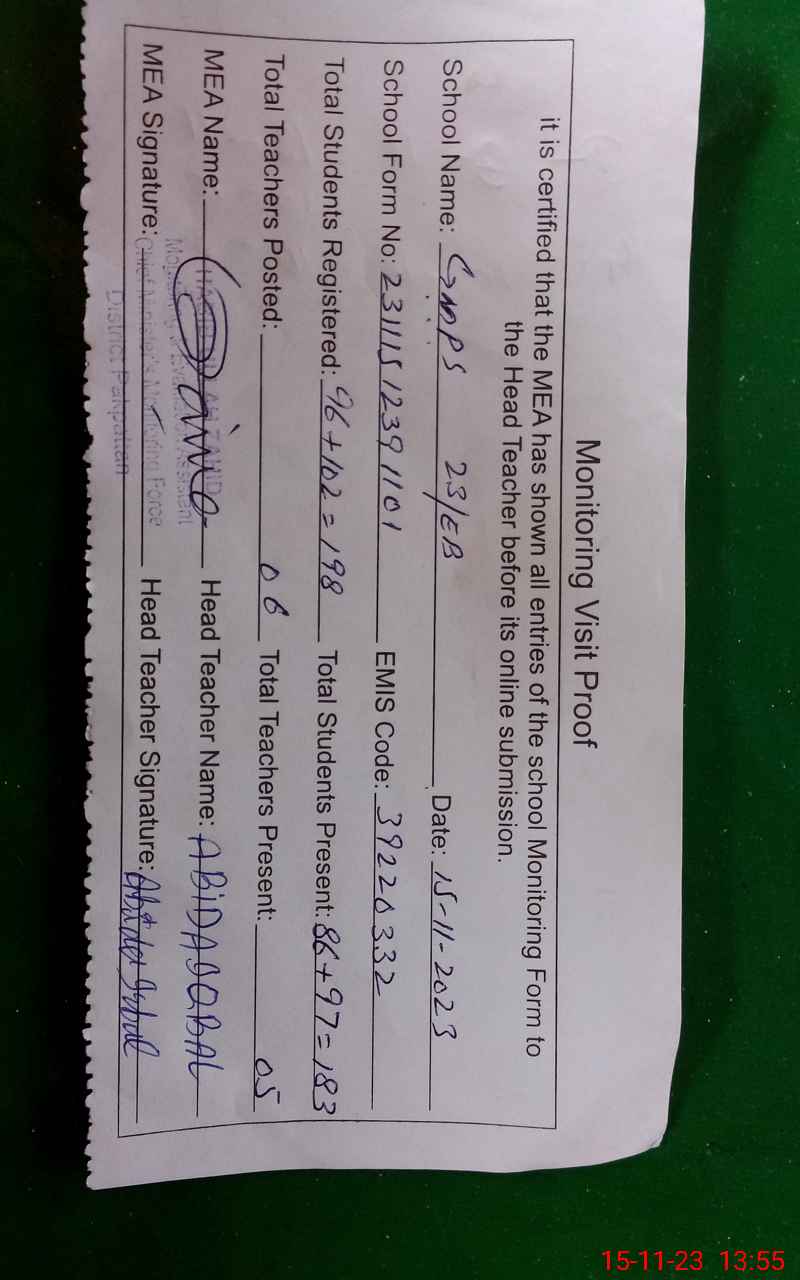 Monitoring Visit Proof
it is certified that the MEA has shown all entries of the school Monitoring Form to
the Head Teacher before its online submission.
School Name: GMPS 23/EB Date: 15-11-2023
School Form No: 23111512391101 EMIS Code: 39220332
Total Students Registered: 96+102=198 Total Students Present: 86+97=183
Total Teachers Posted: 06 Total Teachers Present: 05
MEA Name: Head Teacher Name: ABIDA IQBAL
Monitoring & Evaluation Assistent
MEA Signature: Head Teacher Signature: Abida Iqbal
Chief Minister's Monitoring Force
District Pakpattan
15-11-23 13:55